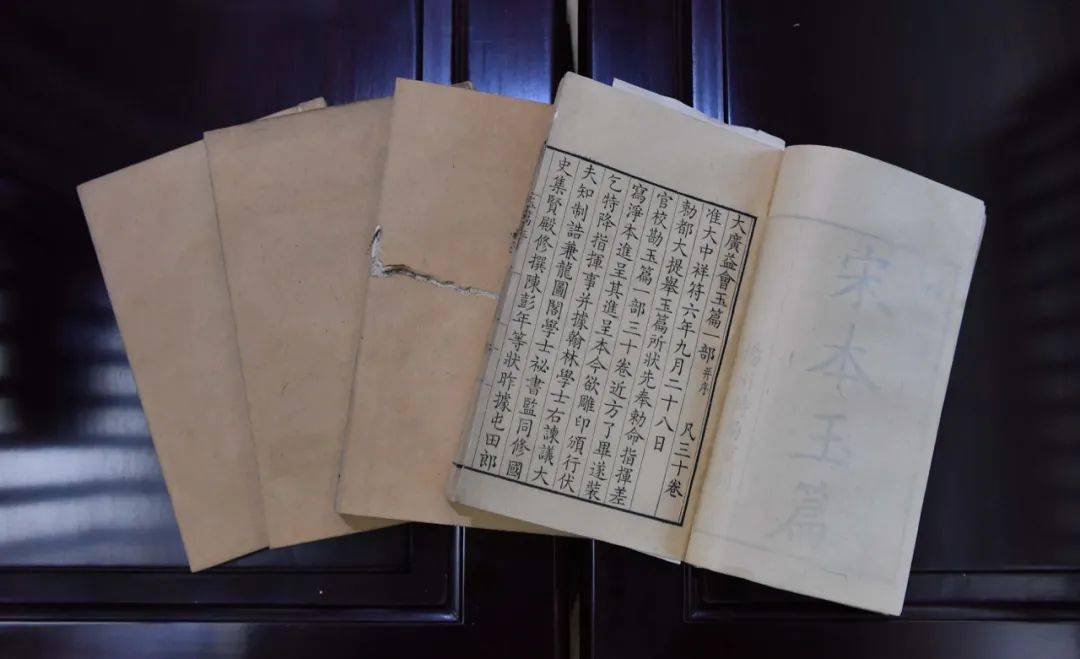 宋本玉篇
大廣益會玉篇一部 并序 凡三十卷
准大中祥符六年九月二十八日
勅都大提舉玉篇所狀先奉勅命指揮差
官校勘玉篇一部三十卷近方了畢遂裝
寫淨本進呈其進呈本今欲雕印頒行伏
乞特降指揮事并據翰林學士右諫議大
夫知制誥兼龍圖閣學士祕書監同修國
史集賢殿修撰陳彭年等狀昨據屯田郎